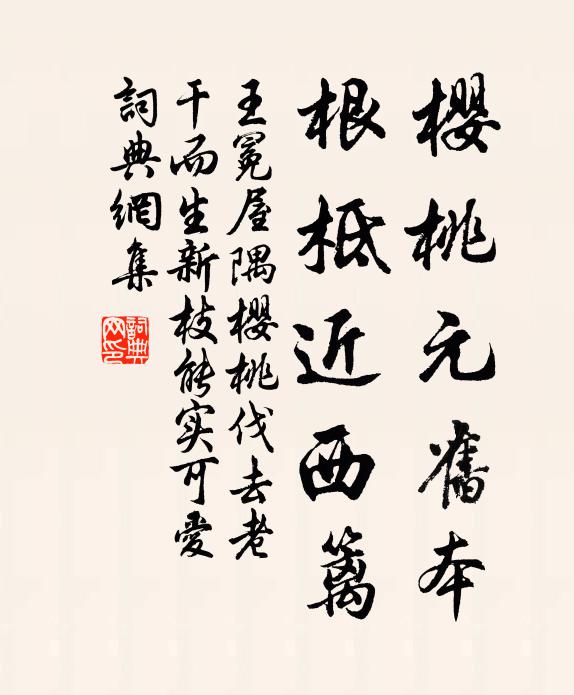 櫻桃元舊本
根柢近西籬
王冕屋隅櫻桃伐去老
干而生新枝能实可愛
詞典網集
詞典
网印